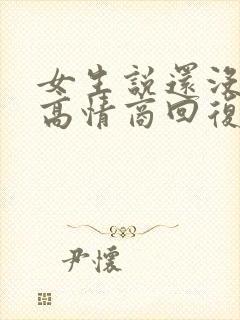 女生説還沒
高情商回復
尹懷